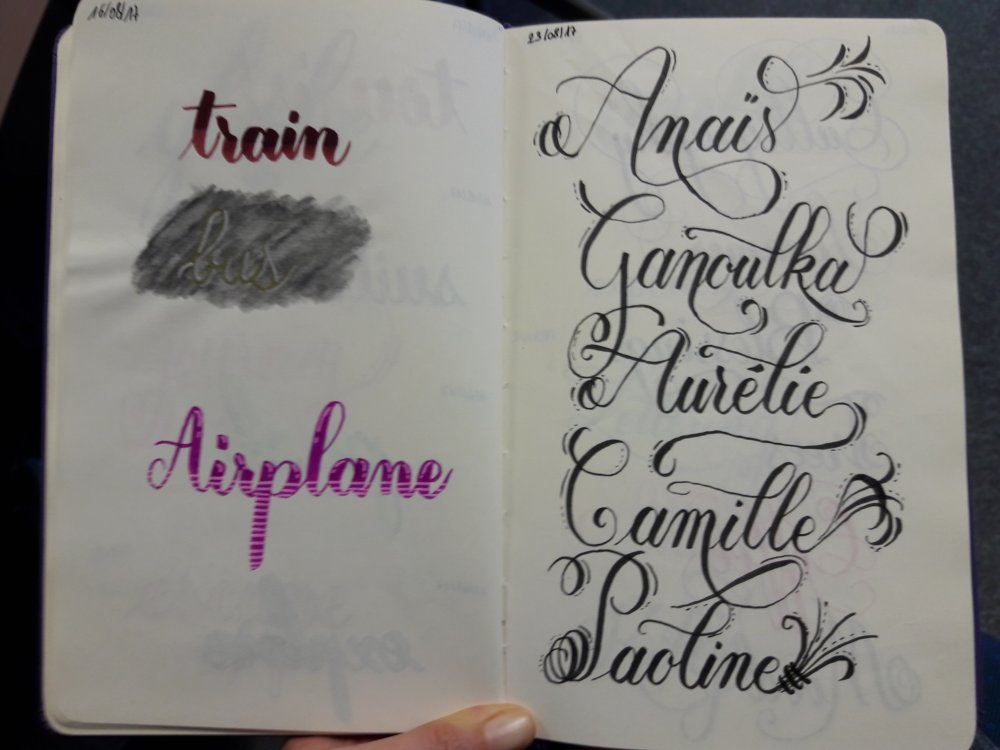 16/08/17
train
bus
Airplane
23/08/17
Anaïs
Ganoulka
Aurélie
Camille
Paoline